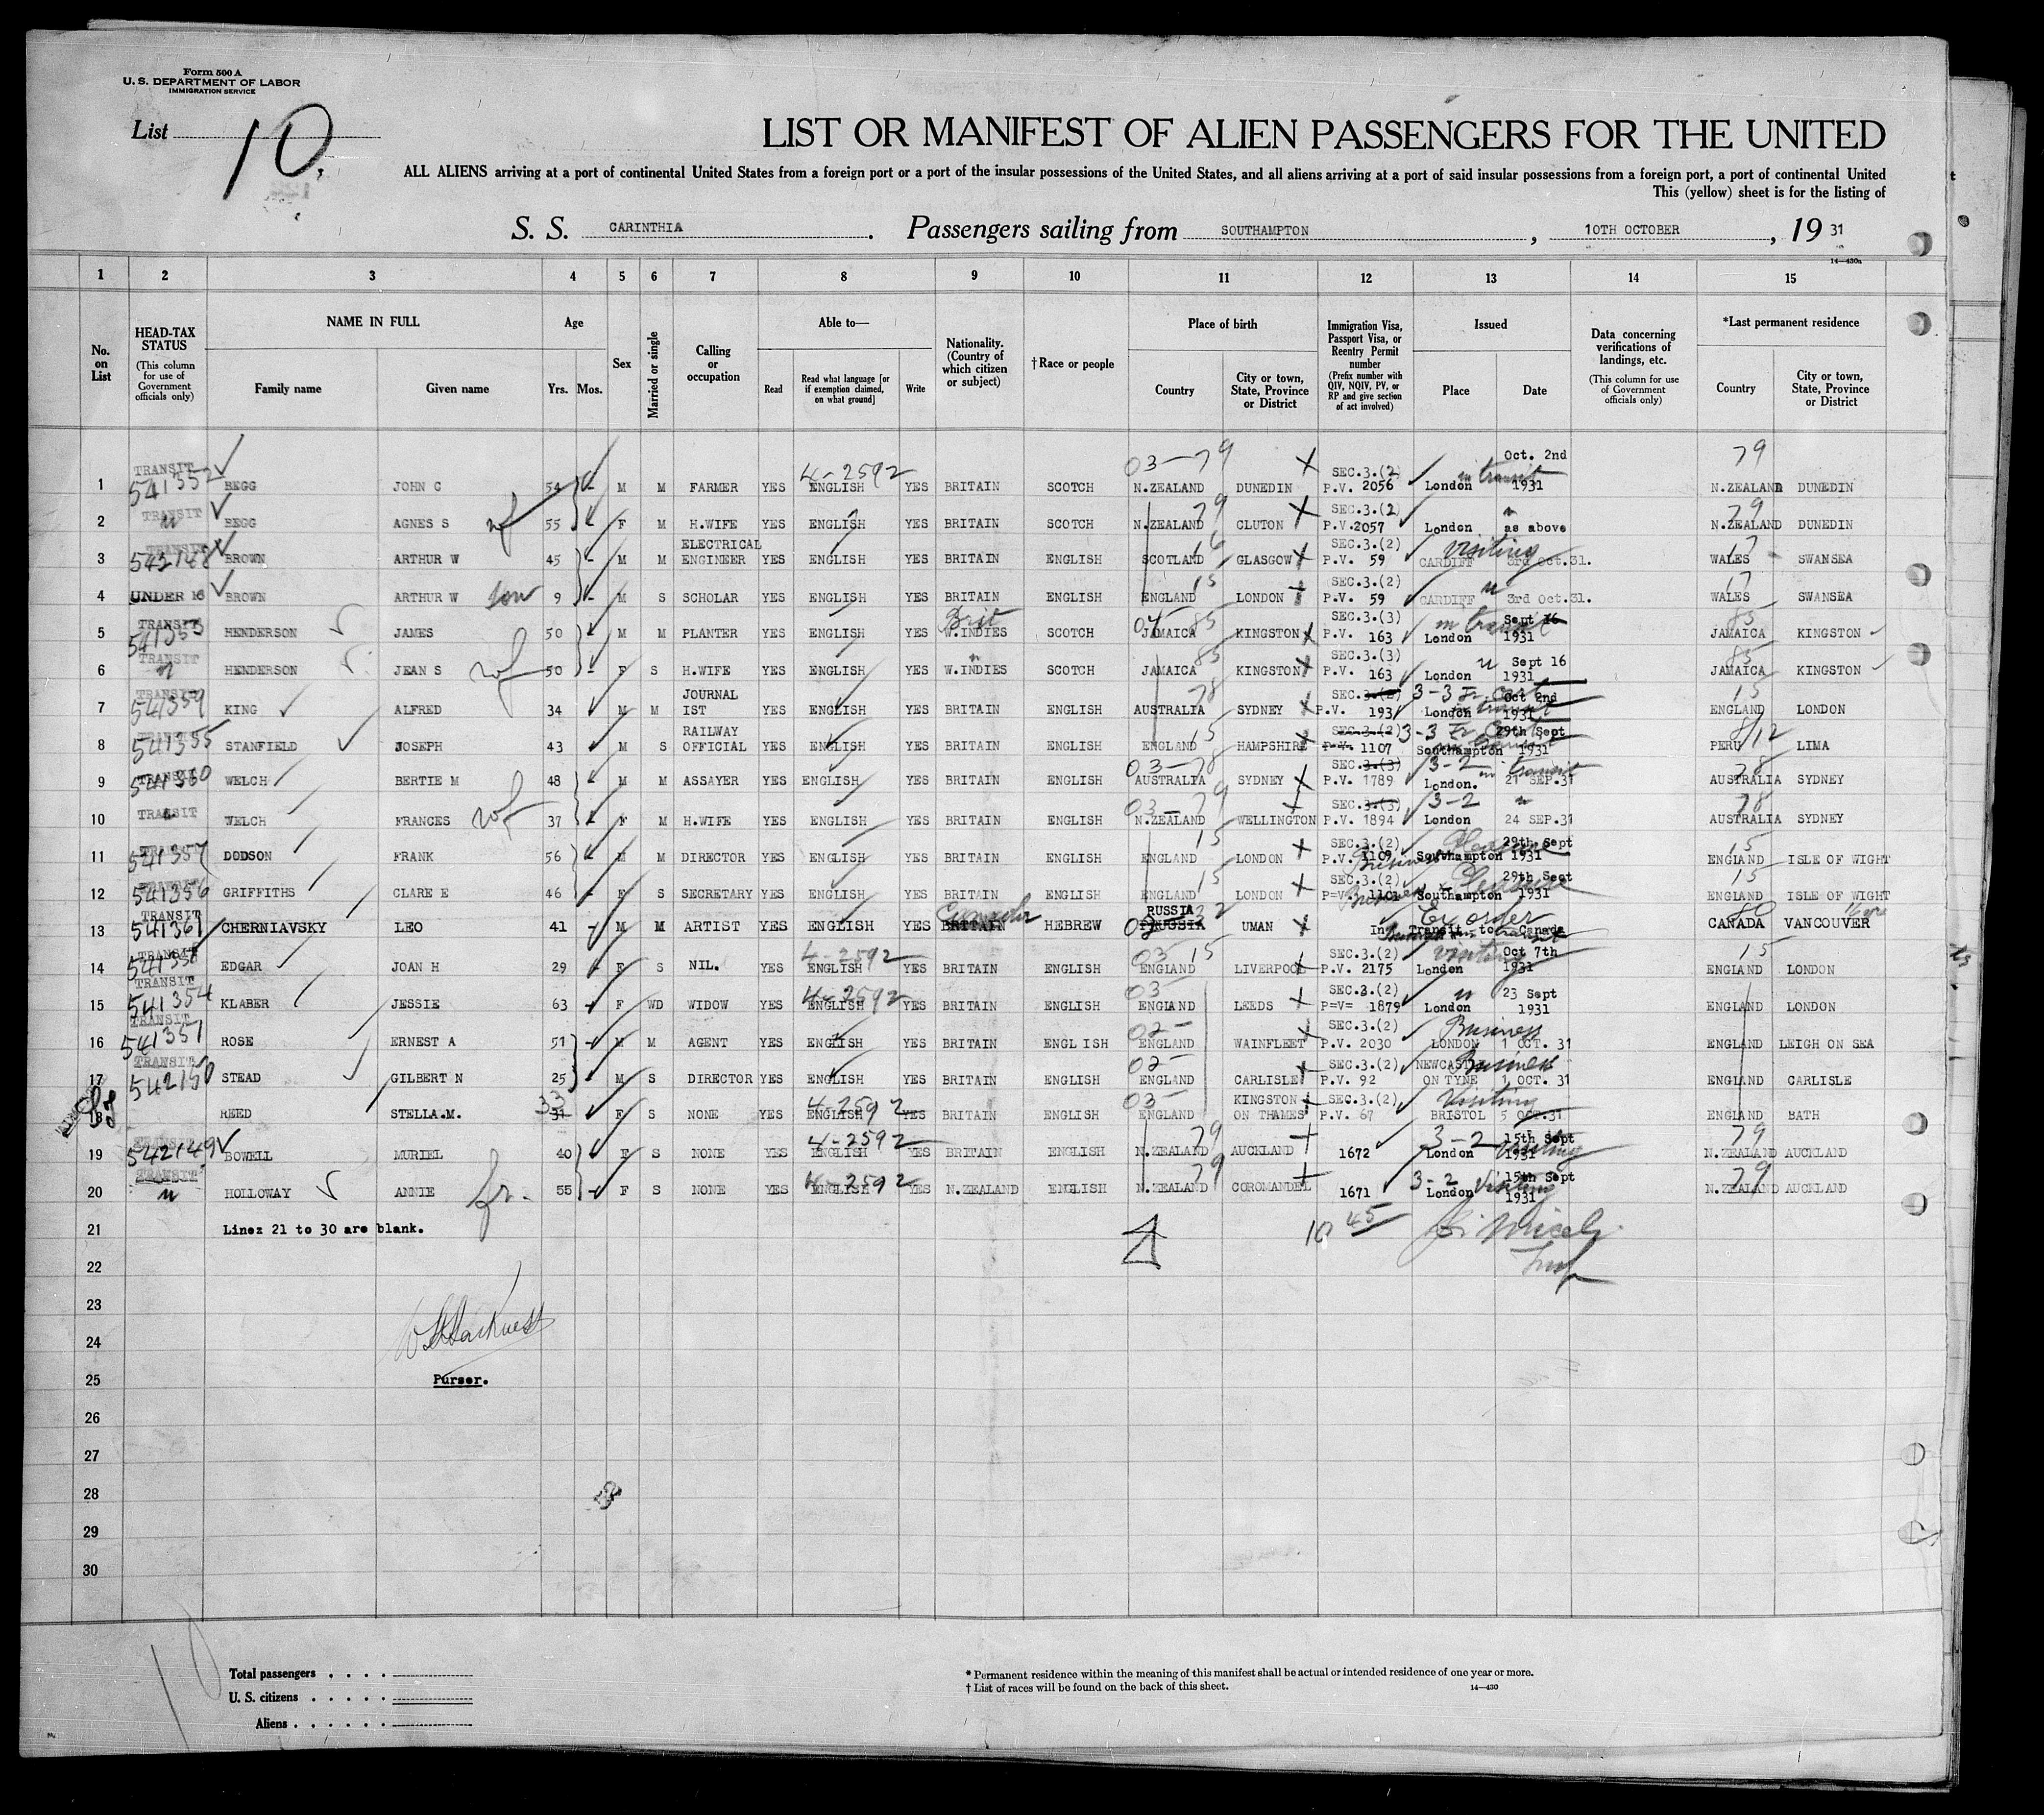 Form 500 A
U. S. DEPARTMENT OF LABOR
IMMIGRATION SERVICE
List 10.
LIST OR MANIFEST OF ALIEN PASSENGERS FOR THE UNITED
ALL ALIENS arriving at a port of continental United States from a foreign port or a port of the insular possessions of the United States, and all aliens arriving at a port of said insular possessions from a foreign port, a port of continental United
This (yellow) sheet is for the listing of
S. S. CARINTHIA. Passengers sailing from SOUTHAMPTON, 10TH OCTOBER, 19 31
14—430a
1 2 3 4 5 6 7 8 9 10 11 12 13 14 15
No. on List
HEAD-TAX STATUS (This column for use of Government officials only)
NAME IN FULL
Family name Given name
Age Yrs. Mos.
Sex
Married or single
Calling or occupation
Able to— Read Read what language [or if exemption claimed, on what ground] Write
Nationality. (Country of which citizen or subject)
† Race or people
Place of birth Country City or town, State, Province or District
Immigration Visa, Passport Visa, or Reentry Permit number (Prefix number with QIV, NQIV, PV, or RP and give section of act involved)
Issued Place Date
Data concerning verifications of landings, etc. (This column for use of Government officials only)
*Last permanent residence Country City or town, State, Province or District
1 TRANSIT 541352 BEGG JOHN C 54 - M M FARMER YES 4-2592 ENGLISH YES BRITAIN SCOTCH 03-79 N.ZEALAND DUNEDIN SEC.3.(2) P.V. 2056 London in transit Oct. 2nd 1931 79 N.ZEALAND DUNEDIN
2 TRANSIT " BEGG AGNES S wf 55 - F M H.WIFE YES ENGLISH YES BRITAIN SCOTCH 79 N.ZEALAND CLUTON SEC.3.(2) P.V.2057 London " as above 79 N.ZEALAND DUNEDIN
3 542148 BROWN ARTHUR W 45 - M M ELECTRICAL ENGINEER YES ENGLISH YES BRITAIN ENGLISH 16 SCOTLAND GLASGOW SEC.3.(2) P.V. 59 visiting CARDIFF 3rd Oct.31. 17 WALES SWANSEA
4 UNDER 16 BROWN ARTHUR W son 9 - M S SCHOLAR YES ENGLISH YES BRITAIN ENGLISH 15 ENGLAND LONDON SEC.3.(2) P.V. 59 CARDIFF " 3rd Oct.31. 17 WALES SWANSEA
5 TRANSIT 541353 HENDERSON JAMES 50 - M M PLANTER YES ENGLISH YES Brit W.INDIES SCOTCH 04 85 JAMAICA KINGSTON SEC.3.(3) P.V. 163 London in transit Sept 16 1931 85 JAMAICA KINGSTON
6 TRANSIT " HENDERSON JEAN S wf 50 - F S H.WIFE YES ENGLISH YES " W.INDIES SCOTCH 85 JAMAICA KINGSTON SEC.3.(3) P.V. 163 London " Sept 16 1931 85 JAMAICA KINGSTON
7 TRANSIT 541359 KING ALFRED 34 M M JOURNAL IST YES ENGLISH YES BRITAIN ENGLISH 78 AUSTRALIA SYDNEY SEC.3.(2) 3-3 P.V. 193 London in transit Oct 2nd 1931 15 ENGLAND LONDON
8 541355 STANFIELD JOSEPH 43 M S RAILWAY OFFICIAL YES ENGLISH YES BRITAIN ENGLISH 15 ENGLAND HAMPSHIRE SEC.3.(2) 3-3 P.V. 1107 Southampton 29th Sept 1931 PERU LIMA
9 TRANSIT 541360 WELCH BERTIE M 48 M M ASSAYER YES ENGLISH YES BRITAIN ENGLISH 03-78 AUSTRALIA SYDNEY SEC.3.(3) 3-2 P.V. 1789 London. in transit 21 SEP.31 78 AUSTRALIA SYDNEY
10 TRANSIT " WELCH FRANCES wf 37 F M H.WIFE YES ENGLISH YES BRITAIN ENGLISH 03-79 N.ZEALAND WELLINGTON SEC.3.(3) 3-2 P.V. 1894 London " 24 SEP.31 78 AUSTRALIA SYDNEY
11 541357 DODSON FRANK 56 M M DIRECTOR YES ENGLISH YES BRITAIN ENGLISH 15 ENGLAND LONDON SEC.3.(2) P.V. 1109 Business Pleasure Southampton 29th Sept 1931 15 ENGLAND ISLE OF WIGHT
12 541356 GRIFFITHS CLARE E 46 F S SECRETARY YES ENGLISH YES BRITAIN ENGLISH 15 ENGLAND LONDON SEC.3.(2) P=V= 1101 Business Pleasure Southampton 29th Sept 1931 15 ENGLAND ISLE OF WIGHT
13 TRANSIT 541361 CHERNIAVSKY LEO 41 - M M ARTIST YES ENGLISH YES BRITAIN HEBREW RUSSIA UMAN Ex order In Transit to Canada 80 CANADA VANCOUVER
14 TRANSIT 541358 EDGAR JOAN H 29 F S NIL. YES 4-2592 ENGLISH YES BRITAIN ENGLISH 03 15 ENGLAND LIVERPOOL SEC.3.(2) P.V. 2175 visiting London Oct 7th 1931 15 ENGLAND LONDON
15 TRANSIT 541354 KLABER JESSIE 63 F WD WIDOW YES 4-2592 ENGLISH YES BRITAIN ENGLISH 03 ENGLAND LEEDS SEC.3.(2) P=V= 1879 London " 23 Sept 1931 ENGLAND LONDON
16 TRANSIT 541351 ROSE ERNEST A 51 M M AGENT YES ENGLISH YES BRITAIN ENGLISH 02- ENGLAND WAINFLEET SEC.3.(2) P.V. 2030 Business LONDON 1 OCT. 31 ENGLAND LEIGH ON SEA
17 TRANSIT 542150 STEAD GILBERT N 25 M S DIRECTOR YES ENGLISH YES BRITAIN ENGLISH 02- ENGLAND CARLISLE SEC.3.(2) P.V. 92 NEWCASTLE ON TYNE Business 1 OCT. 31 ENGLAND CARLISLE
18 REED STELLA.M. 33 31 F S NONE YES 4-2592 ENGLISH YES BRITAIN ENGLISH 03- ENGLAND KINGSTON ON THAMES SEC.3.(2) P.V. 67 Visiting BRISTOL 5 OCT.31 ENGLAND BATH
19 542149 BOWELL MURIEL 40 F S NONE YES 4-2592 ENGLISH YES BRITAIN ENGLISH 79 N.ZEALAND AUCKLAND 1672 3-2 London visiting 15th Sept 1931 79 N.ZEALAND AUCKLAND
20 TRANSIT " HOLLOWAY ANNIE fr. 55 - F S NONE YES 4-2592 ENGLISH YES N.ZEALAND ENGLISH 79 N.ZEALAND COROMANDEL 1671 3-2 London visiting 15th Sept 1931 79 N.ZEALAND AUCKLAND
21 Linez 21 to 30 are blank. 10 45
22
23
24
25 Purser.
26
27
28
29
30
10
Total passengers
U. S. citizens
Aliens
* Permanent residence within the meaning of this manifest shall be actual or intended residence of one year or more.
† List of races will be found on the back of this sheet.
14—430